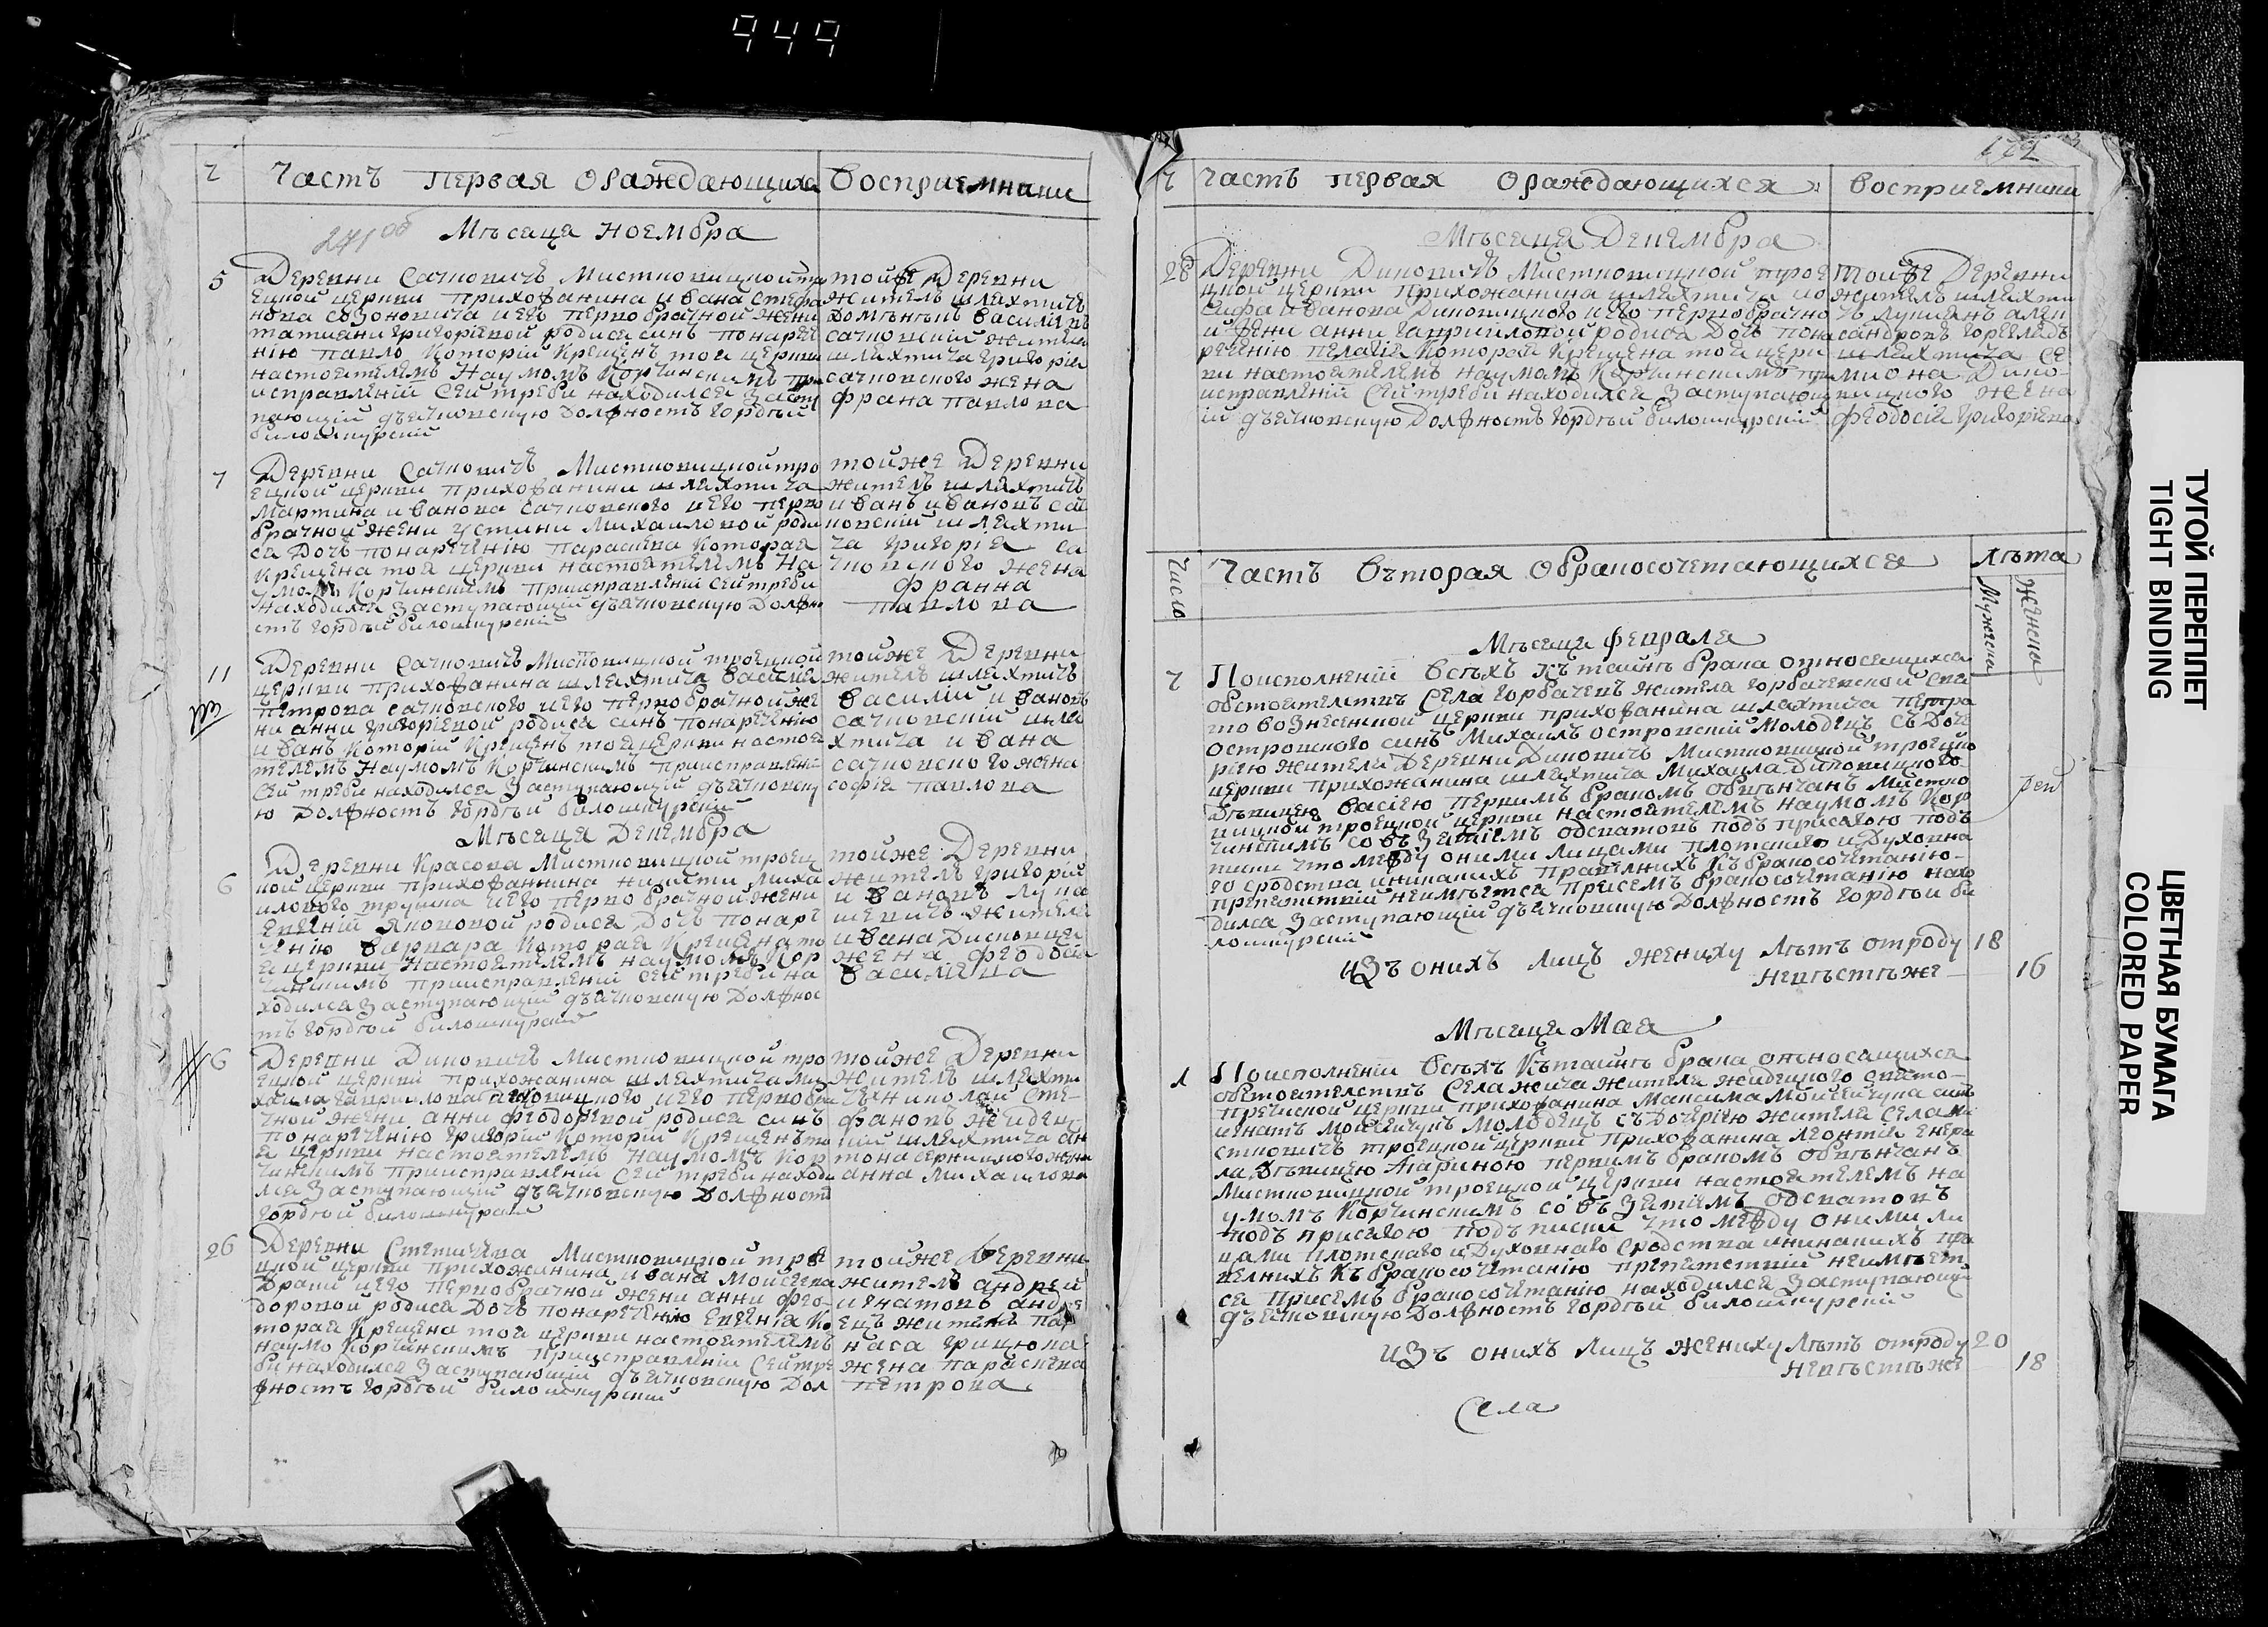 949
Ч Частъ первая ораждающихся Восприемники
271 об Мѣсяца Ноембра
5 Деревни Сачковичъ Мистковицкой тро
ецкой церкви прихожанина ивана стефа
нова созоновича иего первобрачной жени
татиани григоріевой родися синъ понареч
нію павло которій крещенъ тоя церкви
настоятелемъ Наумомъ Корчинскимъ при
исправленій Сей треби находился засту
пающій дъячковскую должность гордѣй
билошкурскій
тойже Деревни
житель шляхтичъ
сачковскій жител
шляхтича григорія
сачковского жена
павлова
7 Деревни Сачковичъ Мистковицкой тро
ецкой церкви прихожанини шляхтича
мартина иванова Сачковского иего перво
брачной жени устини михаиловой роди
ся дочъ понареченію параскева которая
крещена тоя церкви настоятелемъ На
умомъ Корчинскимъ приисправленій сей треби
находился заступающій дъячковскую должно
стъ гордѣй билошкурскій
тойже Деревни
житель шляхтичъ
иванъ ивановъ сач
ковскій шляхти
ча григорія са
чковского жена
павлова
11 Деревни Сачковичъ Мистковицкой троецкой
церкви прихожанина шляхтича василія
петрова сачковского иего первобрачной же
ни анни григоріевой родися синъ понареченію
иванъ которій крещенъ тоя церкви настоя
телемъ Наумомъ Корчинскимъ приисправленій
Сей треби находился заступающій дъячковску
ю должность гордѣй билошкурскій
тойже Деревни
житель шляхтичъ
василій ивановъ
сачковскій шля
хтича ивана
сачковского жена
софія павлова
Мѣсяца Декембра
6 Деревни Красова Мистковицкой троец
кой церкви прихожанина никити миха
илового трушка иего первобрачной жени
евгеній яковой родися дочъ понаре
ченію варвара которая крещена то
я церкви настоятелемъ наумомъ Кор
чинскимъ приисправленій сей треби на
ходился заступающій дъячковскую должнос
тъ гордѣй билошкурскій
тойже Деревни
житель григорій
ивановъ лука
шевичъ жителя
ивана
жена феодосія
василіева
6 Деревни Диковичъ Мистковицкой тро
ецкой церкви прихожанина шляхтича ми
хаила гавриилова диковицкого иего первобра
чной жени анни феодоровой родися синъ
понареченію григорій которій крещенъ то
я церкви настоятелемъ Наумомъ Кор
чинскимъ приисправленій Сей треби находи
лся заступающій дъячковскую должность
гордѣй билошкурскій
тойже Деревни
житель шляхти
чъ николай сте
фановъ жидец
кій шляхтича ан
тона жена
анна михаилова
26 Деревни Мистковицкой трое
цкой церкви прихожанина ивана мойсеева
иего первобрачной жени анни фео
доровой родися дочъ понареченію евгенія ко
торая крещена тоя церкви настоятелемъ
наумо Корчинскимъ приисправленій Сей тре
би находился заступающій дъячковскую дол
жность гордѣй билошкурскій
тойже Деревни
житель андрей
игнатовъ
жителя
жена параскева
петрова
Ч Часть первая Ораждающихся Восприемники
Мѣсяца Декембра
28 Деревни Диковичъ Мистковицкой трое
цкой церкви прихожанина шляхтича ио
сифа иванова диковицкого иего первобрачно
й жени анни гавриловой родися дочъ пона
реченію пелагія которая крещена тоя церк
ви настоятелемъ наумомъ Корчинскимъ при
исправленій Сей треби находился заступающ
ій дъячковскую должность гордѣй билошкурскій
тойже Деревни
житель шляхти
чъ лукіянъ алек
сандровъ
шляхтича се
миона дико
вицкого жена
феодосія григоріева
Число Частъ Въторая Обракосочетающихся Лѣта
Мужеска Женска
Мѣсяца Февраля
7 Поисполненій всѣхъ къ таинѣ брака относящихся
обстоятелствъ Села горбачевъ жителя горбачевской свя
то вознесенской церкви прихожанина шляхтича петра
островского синъ Михаилъ островскій молодецъ съ доче
рію жителя Деревни Диковичъ Мистковицкой троецко
церкви прихожанина шляхтича Михаила Диковицкого
дѣвицею первимъ бракомъ обвѣнчанъ Мистко
вицкой троецкой церкви настоятелемъ наумомъ Кор
чинскимъ совъзятіемъ подъ присягою подъ
писки что между оними лицами плотского и духовна
го сродства иникакихъ правелнихъ къ бракосочетанію
препятствій неимѣется присемъ бракосочетанію нахо
дился заступающій дъячковскую должность гордѣй би
лошкурскій
изъ онихъ лицъ жениху лѣтъ отроду 18
невѣстѣ же 16
Мѣсяца Мая
1 Поисполненій всѣхъ къ таинѣ брака относящихся
обстоятелствъ Села жителя свято
пречиской церкви прихожанина Максима синъ
игнатъ молодецъ съ дочерію жителя Села ми
стковичъ троецкой церкви прихожанина леонтія
дѣвицею первимъ бракомъ обвѣнчанъ
Мистковицкой троецкой церкви настоятелемъ на
умомъ Корчинскимъ совъзятіемъ
подъ присягою подъписки что между оними ли
цами плотского и духовнаго сродства иникакихъ пра
велнихъ къ бракосочетанію препятствій неимѣет
ся присемъ бракосочетанію находился заступающій
дъячковскую должность гордѣй билошкурскій
изъ онихъ лицъ жениху лѣтъ отроду 20
невѣстѣ же 18
Села
ТУГОЙ ПЕРЕПЛЕТ
TIGHT BINDING
ЦВЕТНАЯ БУМАГА
COLORED PAPER